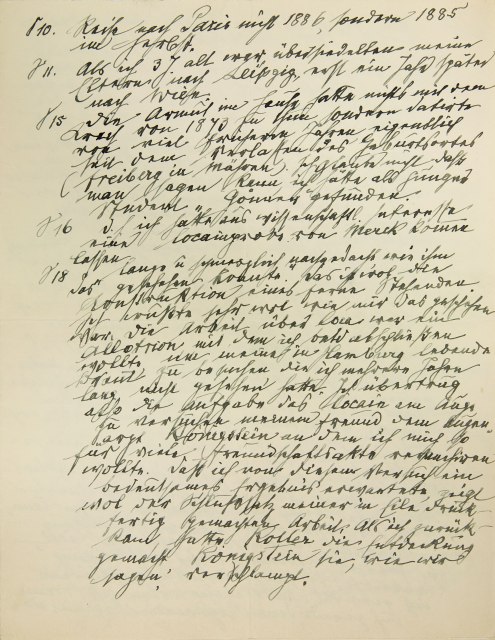 S 10. Reise nach Paris nicht 1886, sondern 1885
im Herbst.
S 11. Als ich 3 J alt war, übersiedelten meine
Eltern nach Leipzig, erst ein Jahr später
nach Wien.
S 15 Die Armut im Hause hatte nichts mit dem
Krach von 1873 zu thun sondern datirte
von viel früheren Jahren eigentlich
seit dem Verlassen des Geburtsortes
(Freiberg in Mähren). Ich glaube nicht daß
man sagen kann ich hätte als hungriger
Student Gönner gefunden.
S 16 d. ich hätte aus wissenschaftl. Interesse
eine Cocainprobe von Merck kommen
lassen.
S 18 lange u schmerzlich nachgedacht wie ihm
das geschehen konnte. Das ist wol die
Konstruktion eines ferne Stehenden.
Ich wußte sehr wol wie mir das geschehen
war. Die Arbeit über Coca war ein
Allotrion mit dem ich bald abschließen
wollte um meine in Hamburg lebende
Braut zu besuchen die ich mehrere Jahre
lang nicht gesehen hatte. Ich übertrug
also die Aufgabe das Cocain am Auge
zu versuchen meinem Freund dem Augen-
arzt Königstein an dem ich mich so
für viele Freundschaftsakte revanchiren
wollte. Daß ich von diesem Versuch ein
bedeutsames Ergebnis erwartete zeigt
wol der Schlußsatz meiner in Eile druck-
fertig gemachten Arbeit. Als ich zurück-
kam hatte Koller die Entdeckung
gemacht Königstein sie, wie wir
sagen, verschlampt.